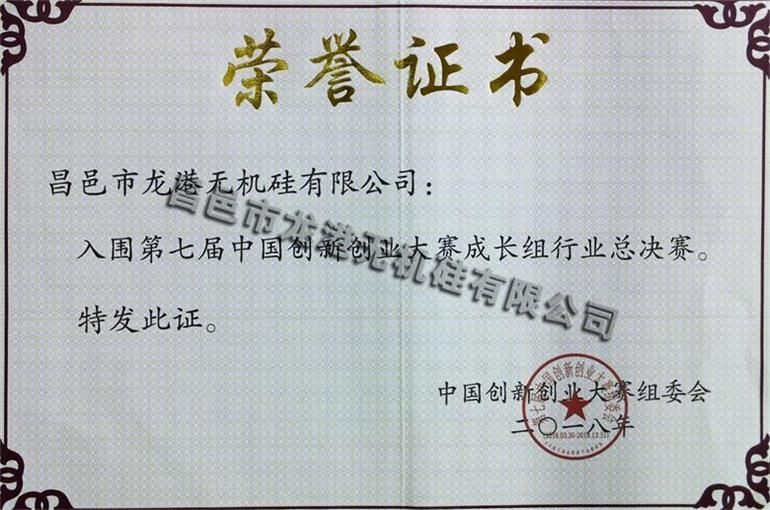 荣誉证书
昌邑市龙港无机硅有限公司：
入围第七届中国创新创业大赛成长组行业总决赛。
特发此证。
昌邑市龙港无机硅有限公司
中国创新创业大赛组委会
二〇一八年